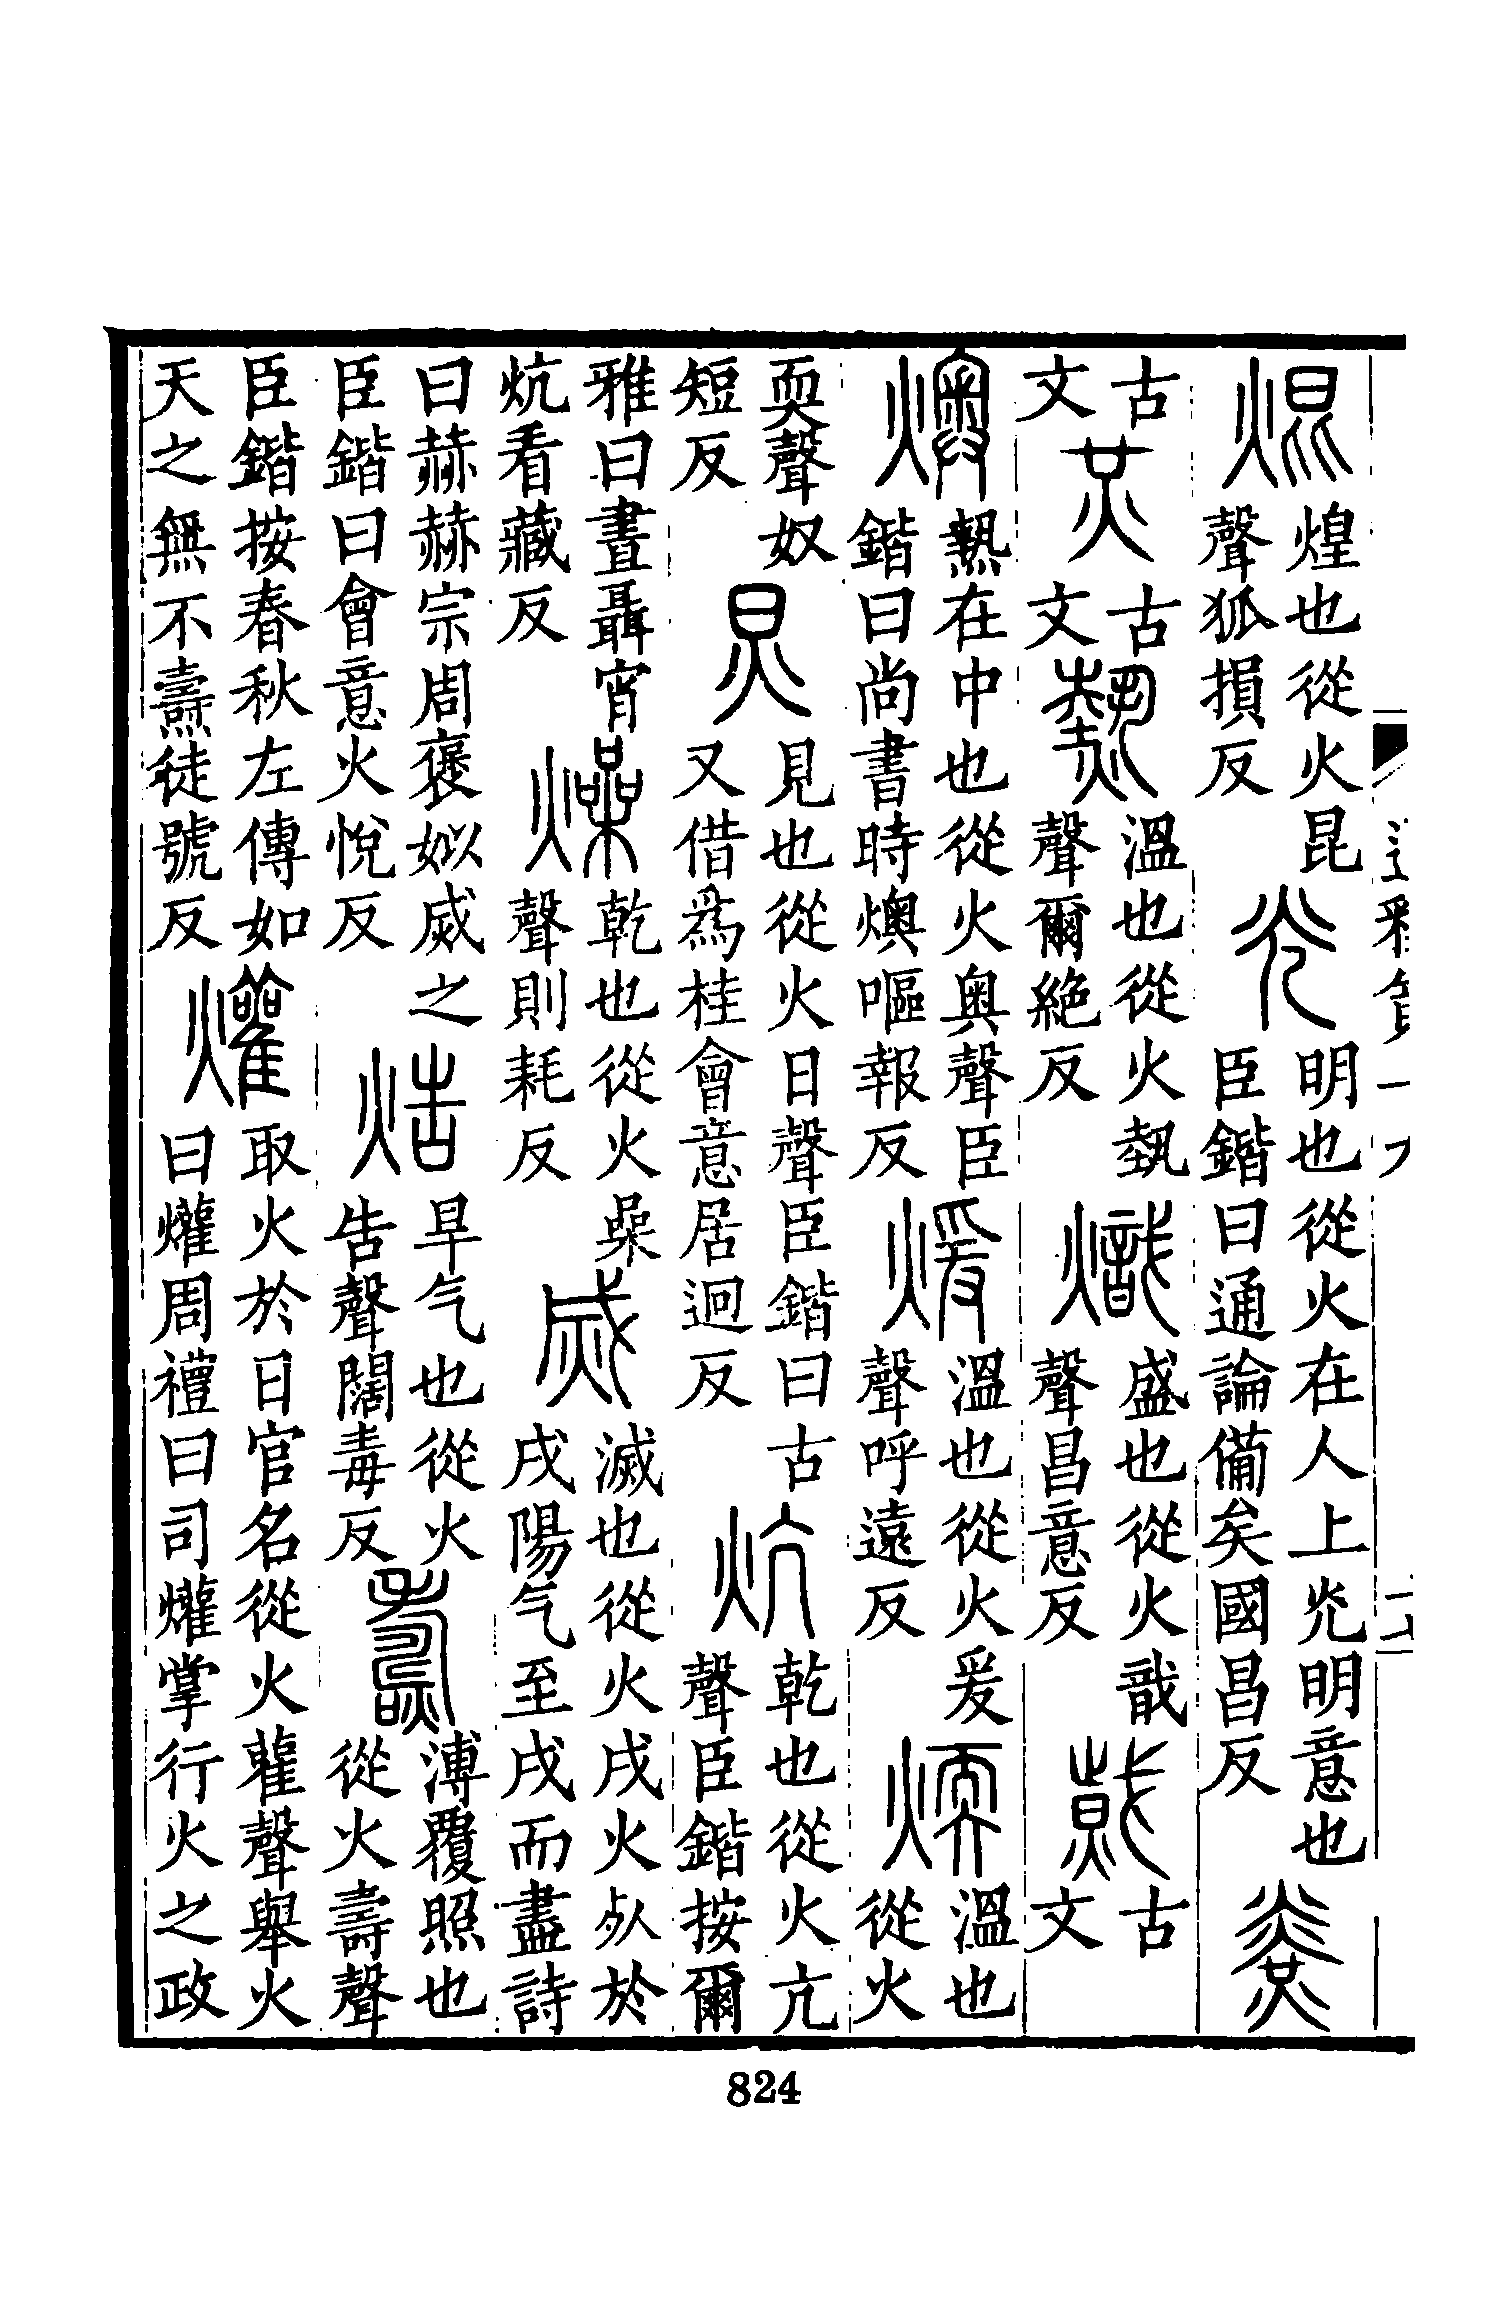 焜煌也從火昆聲狐損反光明也從火在人上光明意也臣鍇曰通論備矣國昌反𤎫
古文炗古文熱溫也從火埶聲爾絶反熾盛也從火戠聲昌意反𢧤古文
燠熱在中也從火奥聲臣鍇曰尚書時燠嘔報反煖溫也從火爰聲呼遠反煗溫也從火
耎聲奴短反炅見也從火日聲臣鍇曰古又借為桂會意居迥反炕乾也從火亢聲臣鍇按爾
雅曰晝聶宵炕看藏反燥乾也從火喿聲則耗反烕滅也從火戌火死於戌陽气至戌而盡詩
曰赫赫宗周褒姒烕之臣鍇曰會意火悅反焅旱气也從火告聲闊毒反燾溥覆照也從火壽聲
臣鍇按春秋左傳如天之無不燾徒號反爟取火於日官名從火雚聲舉火曰爟周禮曰司爟掌行火之政
824